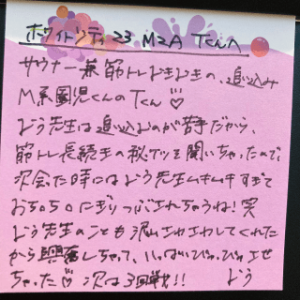 ホワイトシティ23 M2A Tくんへ
サウナー兼筋トレおきおきの、追い込み
M系園児くんのTくん♡
どう先生は追い込むのが苦手だから、
筋トレ長続きの秘ケツを聞いちゃったので
次会った時にはどう先生ムキムキすぎて
おち○ち○にぎりつぶされちゃうね!笑
どう先生のことも沢山さわさわしてくれた
から興奮しちゃって、いっぱいぴゅっぴゅさせ
ちゃった♡ 次は3回戦!! どう